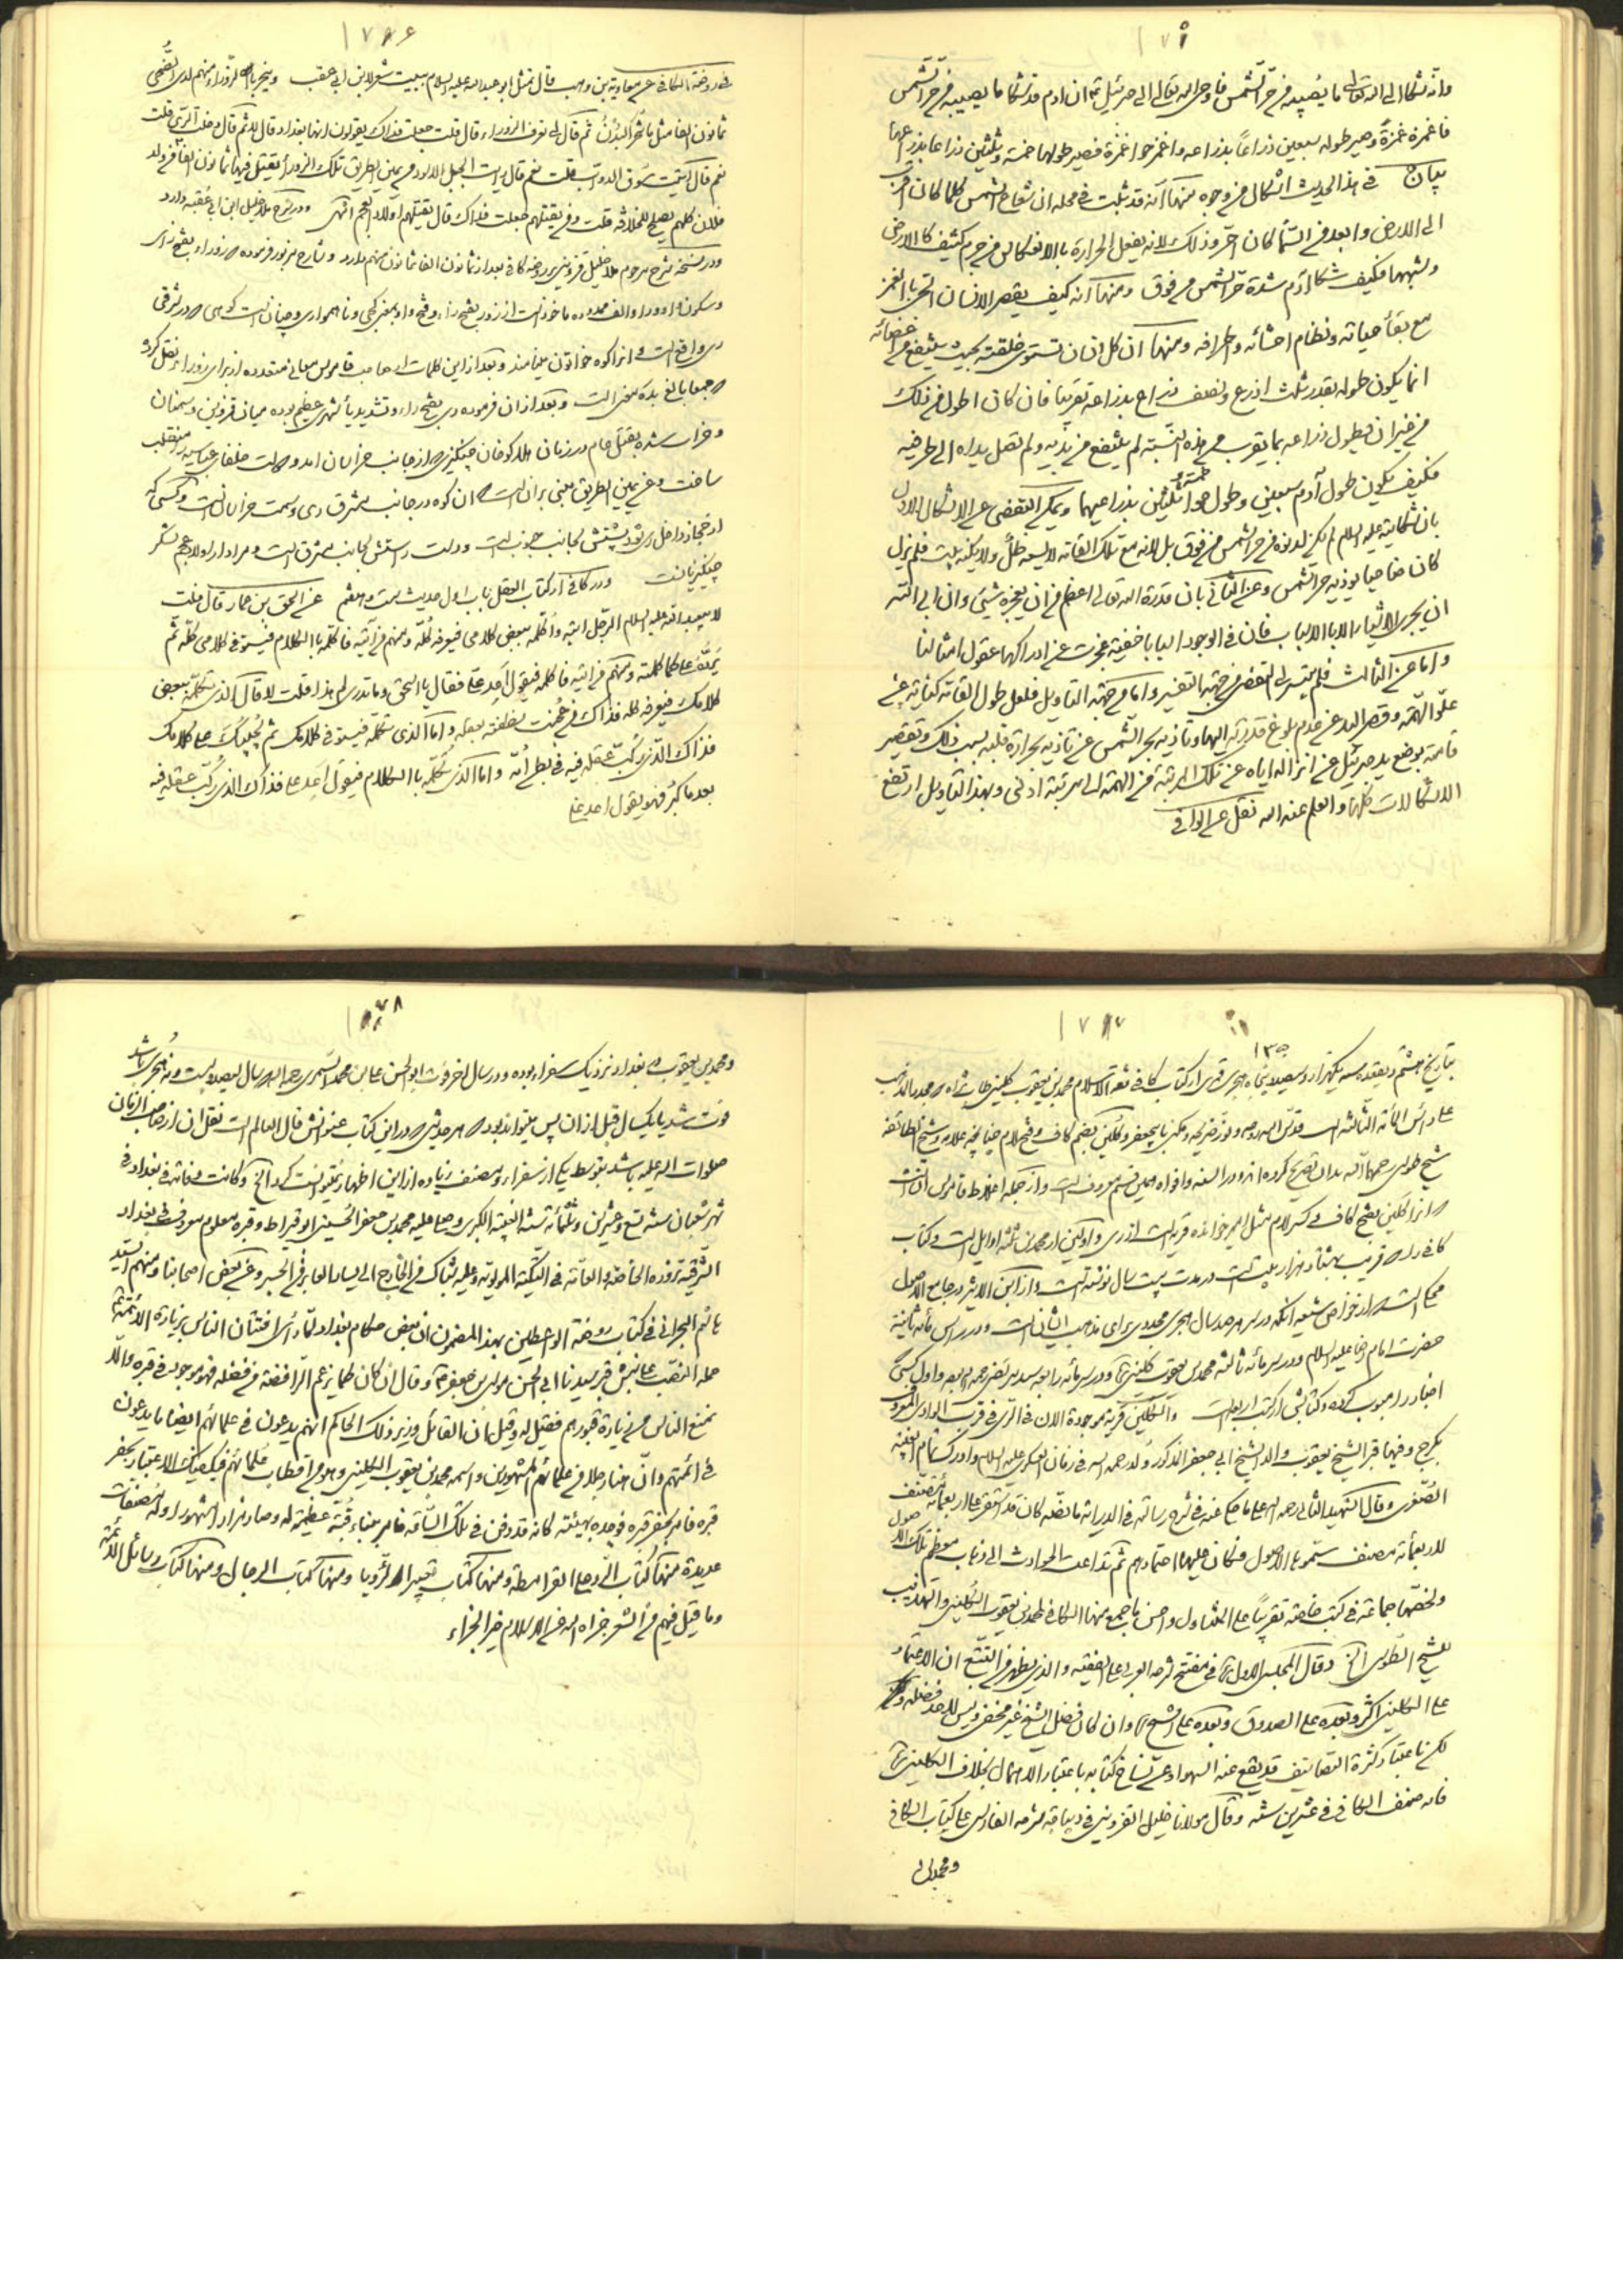 ۱۷۵
وانّه شكا الى الله تعالى ما يُصيبه من حرّ الشّمس فاوحى الله تعالى الى جبرئيل ان ادم قد شكا ما يصيبه من حرّ الشمس
فاغمزه غمزةً وصير طوله سبعين ذراعاً بذراعه واغمز حوا غمزة فصير طولها خمسة وثلثين ذراعا بذراعها
بيان في هذا الحديث اشكال من وجوه منها انّه قد ثبت في محله ان شعاع الشمس كلما كان اقرب
الى الارض وابعد من السّما كان احرّ وذلك لانه يفعل الحرارة بالانعكاس من جرم كثيف كالارض
وشبهها فكيف شكا آدم شدة حرّ الشمس من فوق ومنها انه كيف يقصر الانسان الحيّ بالغمز
مع بقاء حياته ونظام احشائه واطرافه ومنها ان كل انسان تستوى خلقته بحيث ينتفع من اعضائه
انما يكون طوله بقدر ثلث اذرع ونصف ذراع بذراعه تقريبا فان كان اطول من ذلك
من غير ان يطول ذراعه بما يقرب من هذه النسبة لم ينتفع من يديه ولم تصل يداه الى طرفيه
فكيف يكون طول آدم سبعين وطول حوا خمسة وثلثين بذراعيهما ويمكن التفصّى عن الاشكال الاول
بان شكايته عليه السلام لم يكن لدنوه من حرّ الشمس من فوق بل لانه مع تلك القامة لا يسعه ظلّ ولا يكنه بيت فلم يزل
كان ضاحيا يوذيه حرّ الشمس وعن الثاني بان قدرة الله تعالى اعظم من ان يعجزه شيئ وان ابى الله
ان يجرى الاشياء الا بالاسباب فان في الوجود اسبابا خفية عجزت عن ادراكها عقول امثالنا
واما عن الثالث فلم يتيسر لى التفصّى من جهة التفسير واما من جهة التاويل فلعل طول القامة كناية عن
علوّ الهمّة وقصر اليد عن عدم بلوغ قدرته اليها وتاذيه بحر الشمس عن تاذيه بحرارة قلبه بسبب ذلك وتقصير
قامته بوضع يد جبرئيل عن انزاله اياه عن تلك المرتبة من الهمة الى مرتبة ادنى وبهذا التاويل ارتفع
الاشكالات كلّها والعلم عند الله نقل عن الوافي
۱۷۶
في روضة الكافي عن معاوية بن وهب قال تمثل ابو عبد الله عليه السلام ببيت شعر لابن ابى عقب وينحر بالزوراء منهم لدى الضّحى
ثمانون الفا مثل ما تُنحر البُدنُ ثم قال لى تعرف الزوراء قال قلت جعلت فداك يقولون انها بغداد قال لا ثم قال دخلت الريّ قلت
نعم قال اتيت سوق الدواب قلت نعم قال رايت الجبل الاسود عن يمين الطريق تلك الزوراء يقتل فيها ثمانون الفا من ولد
فلان كلهم يصلح للخلافة قلت ومن يقتلهم جعلت فداك قال يقتلهم اولاد العجم انتهى ودر شرح ملا خليل ابن ابى عقبه دارد
ودر نسخه شرح مرحوم ملا خليل قزوينى بر روضه كافى بعد از ثمانون الفا ثمانون منهم دارد وشارح مزبور فرموده زوراء بفتح زاى
وسكون واو وراء والف ممدوده ماخوذ است از زور بفتح زاء وفتح واو بمعنى كجى وناهموارى وچنان است كوهى در شرقى
رى واقع است وانرا كوه خواتون مينامند وبعد از اين كلمات از صاحب قاموس معانى متعدده از براى زوراء نقل كرده
بالغ بده معنى است وبعد از ان فرموده رى بفتح راء وتشديد ياء شهرى عظيم بوده ميان قزوين وسمنان
وخراب شده بقتل عام در زمان هلاكو خان چنگيزى از جانب خراسان امد ودولت خلفاى عباسيه را منقلب
ساخت وعن يمين الطريق مبنى بر ان است كه ان كوه در جانب مشرق رى وسمت خراسان است وكسى كه
از حجاز داخل رى شود پشتش بجانب جنوب است ودست راستش بجانب مشرق است ومراد از اولاد عجم لشكر
چنگيزيانست ودر كافى از كتاب العقل باب اول حديث بيست وهفتم عن اسحق بن عمار قال قلت
لابيعبد الله عليه السلام الرجل اتيه واكلمه ببعض كلامى فيعرفه كلّه ومنهم من آتيه فاكلّمه بالكلام فيستوفى كلامى كله ثمّ
يردّه على كما كلمته ومنهم من اتيه فاكلمه فيقول اَعِد علىّ فقال يا اسحق وما تدرى لم هذا قلت لا قال الذى تكلمه ببعض
كلامك فيعرفه كله فذاك من عُجنت نطفته بعقله واما الذى تكلّمه فيستوفى كلامك ثم يُجيبك على كلامك
فذاك الذى ركّب عقله فيه في بطن اُمّه واما الذى تكلّمه بالكلام فيقول اَعِد على فذاك الذى ركّب عقله فيه
بعد ما كبر فهو يقول اعد علىّ
۱۷۷
بتاريخ هشتم ذيقعده سنه يكهزار وسيصد وپنجاه هجرى قمرى از كتاب كافى ثقة الاسلام محمد بن يعقوب كلينى
على رأس المأة الثالثة است قدّس الله روحه ونور ضريحه ومكنى بابيجعفر وكلين بضم كاف وفتح لام چنانچه علامه وشيخ الطائفه
شيخ طوسى رحمهما الله بدان تصريح كرده اند ودر السنه وافواه همين قسم معروف است واز جمله اغلاط قاموس ان است
كه انرا كلين بفتح كاف وكسر لام مثل امير خوانده قريه است از رى
كافى قريب بهشتاد هزار بيت است در مدت بيست سال نوشته است واز ابن الاثير در جامع الاصول
محكى است كه از خواص شيعه انكه در سر هر صد سال هجرى مجددى براى مذهب ايشان است ودر راس مأة ثانيه
حضرت امام رضا عليه السلام ودر سر مأة ثالثه محمد بن يعقوب كلينى ودر سر مأة رابعه سيد مرتضى رحمه الله بود واول كسى كه
اخبار را مبوب كرده وكتابش از كتب اربعه است والكلين قرية موجودة الان في الرى في قرب الوادى المعروف
بكرج وفيها قبر الشيخ يعقوب والد الشيخ ابى جعفر المذكور ولد رحمه الله في زمان العسكرى عليه السلام وادرك تمام الغيبة
الصّغرى وقال الشهيد الثانى رحمه الله على ما حكى عنه في شرح رسالته في الدراية ما نصّه كان قد استقر على اربعمأة مصنّف
لاربعمأة مصنف سمّوها الاصول وكان عليها اعتمادهم ثم تداعت الحوادث الى ذهاب معظم تلك الاصول
ولخصّها جماعة في كتب خاصّة تقريباً على المتناول واحسن ما جمع منها الكافي لمحمد بن يعقوب الكلينى والتهذيب
للشيخ الطوسى الخ وقال المجلسى الاول في مفتتح شرحه العربى على الفقيه والذى يظهر من التتبع ان الاعتماد
على الكلينى اكثر وبعده على الصدوق وبعده على الشيخ وان كان فضل الشيخ غير مخفى وليس لاحد فضله
لكن باعتبار كثرة التصانيف قد يقع عنه السهو او عن نساخ كتابه باعتبار الاهمال بخلاف الكلينى
فانه صنف الكافى في عشرين سنة وقال مولانا خليل القزوينى في ديباجة شرحه الفارسى على كتاب الكافى
ومحمد بن
۱۷۸
ومحمد بن يعقوب در بغداد نزديك سفراء بوده ودر سال اخر فوت ابو الحسن على بن محمد السمرى رحمه الله كه سال سيصد وبيست ونه هجرى باشد
فوت شد يا يكسال قبل از ان پس ميتواند بود كه هر حديثى كه در اين كتاب عنوانش قال العالم است نقل ان از صاحب الزمان
صلوات الله عليه باشد بتوسط يكى از سفراء ومصنف زياده از اين اظهار نميتوانست كرد الخ وكانت وفاته في بغداد في
شهر شعبان سنة تسع وعشرين وثلثمأة سنة الغيبة الكبرى وصلى عليه محمد بن جعفر الحسينى ابو قيراط وقبره معلوم معروف في بغداد
الشرقية تزوره الخاصّة والعامّة في التكية المولوية وعليه شباك من الخارج الى يسار العابر من الجسر وعن بعض اصحابنا ومنهم السيد
هاشم البحرانى في كتاب روضة الواعظين بهذا المضمون ان بعض حكام بغداد لمّا رأى افتتان الناس بزيارة الائمة
حمله النصب على نبش قبر سيدنا ابى الحسن موسى بن جعفر وقال ان كان كما يزعم الرّافضة من فضله فهو موجود في قبره والّا
نمنع الناس من زيارة قبورهم فقيل له وقيل ان القائل وزير ذلك الحاكم انهم يدعون في علمائهم ايضا ما يدعون
في ائمتهم وانّ هنا رجلا من علمائهم المشهورين واسمه محمد بن يعقوب الكلينى وهو من اقطاب علمائهم فيكفيك الاعتبار بحفر
قبره فامر بحفر قبره فوجده بهيئته كانه قد دفن في تلك السّاعة فامر ببناء قبّة عظيمة له وصار مزارا مشهورا وله مصنفات
عديدة منها كتاب الرّد على القرامطة ومنها كتاب تعبير الرّويا ومنها كتاب الرجال ومنها كتاب رسائل الائمة
وما قيل فيهم من الشعر جزاه الله من الاسلام خير الجزاء